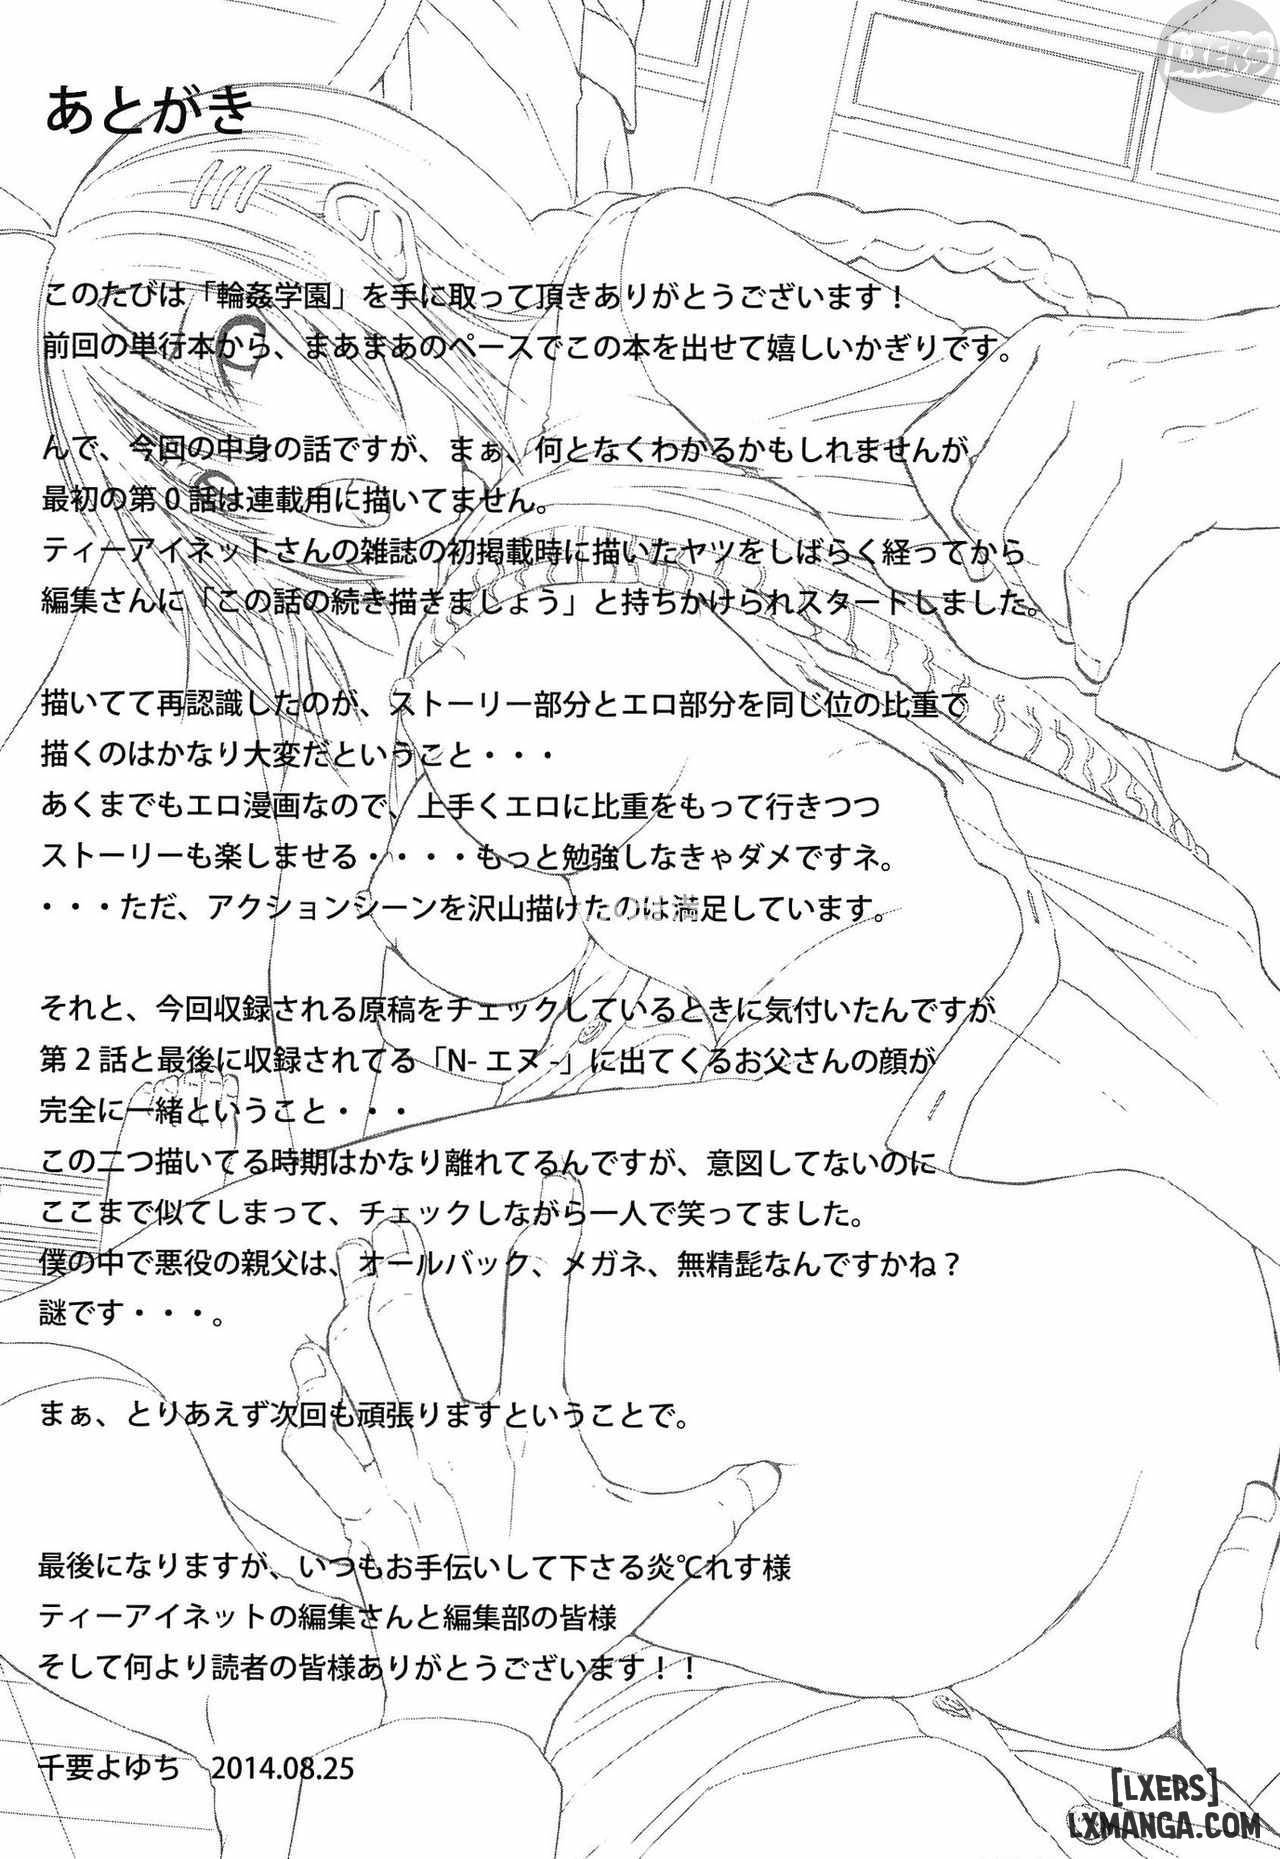 あとがき
このたびは「輪姦学園」を手に取って頂きありがとうございます！
前回の単行本から、まあまあのペースでこの本を出せて嬉しいかぎりです。
んで、今回の中身の話ですが、まぁ、何となくわかるかもしれませんが
最初の第０話は連載用に描いてません。
ティーアイネットさんの雑誌の初掲載時に描いたヤツをしばらく経ってから
編集さんに「この話の続き描きましょう」と持ちかけられスタートしました。
描いてて再認識したのが、ストーリー部分とエロ部分を同じ位の比重で
描くのはかなり大変だということ・・・
あくまでもエロ漫画なので、上手くエロに比重をもって行きつつ
ストーリーも楽しませる・・・・もっと勉強しなきゃダメですネ。
・・・ただ、アクションシーンを沢山描けたのは満足しています。
それと、今回収録される原稿をチェックしているときに気付いたんですが
第２話と最後に収録されてる「N- エヌ -」に出てくるお父さんの顔が
完全に一緒ということ・・・
この二つ描いてる時期はかなり離れてるんですが、意図してないのに
ここまで似てしまって、チェックしながら一人で笑ってました。
僕の中で悪役の親父は、オールバック、メガネ、無精髭なんですかね？
謎です・・・。
まぁ、とりあえず次回も頑張りますということで。
最後になりますが、いつもお手伝いして下さる炎℃れす様
ティーアイネットの編集さんと編集部の皆様
そして何より読者の皆様ありがとうございます！！
千要よゆち　2014.08.25
[LXERS]
LXMANGA.COM